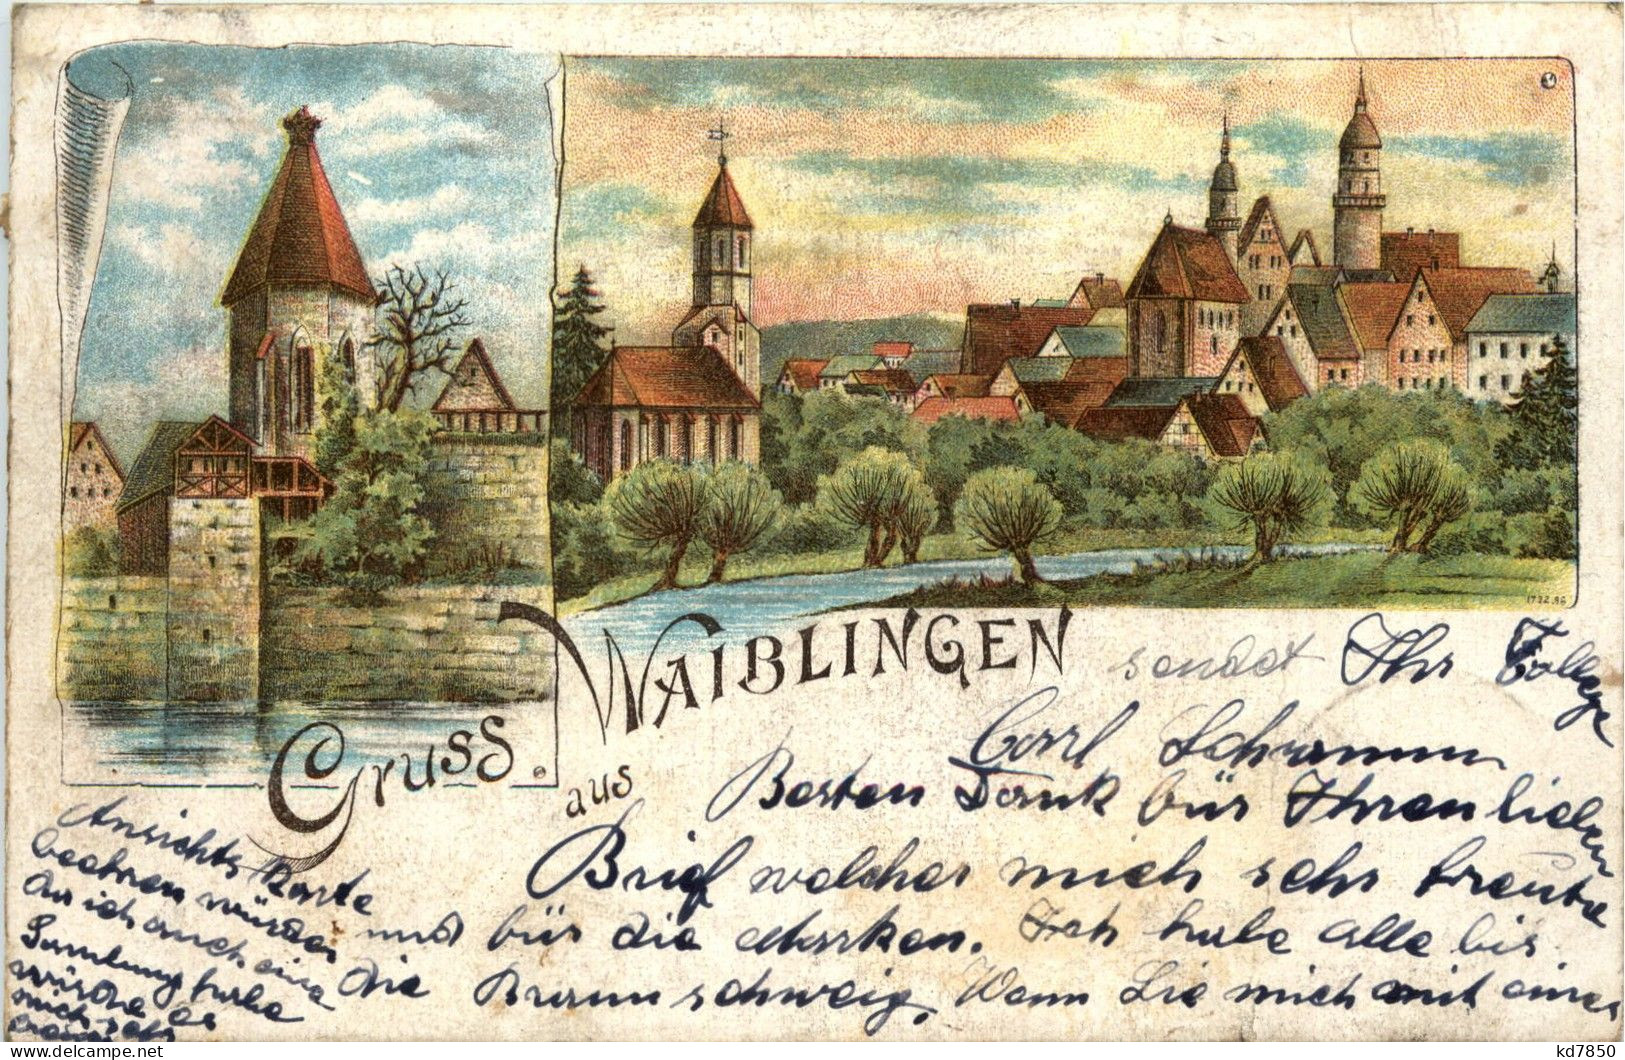 1722.96
Gruss
aus
WAIBLINGEN
sendet Ihr College
Carl Schramm
Besten Dank für Ihren lieben
Brief welcher mich sehr freute
und für die Marken. Ich habe alle bis
die Braunschweig, Wenn Sie mich mit einer
Ansichts Karte
beehren würden
da ich auch eine
Samlung habe
würde es
mich sehr
kd7850